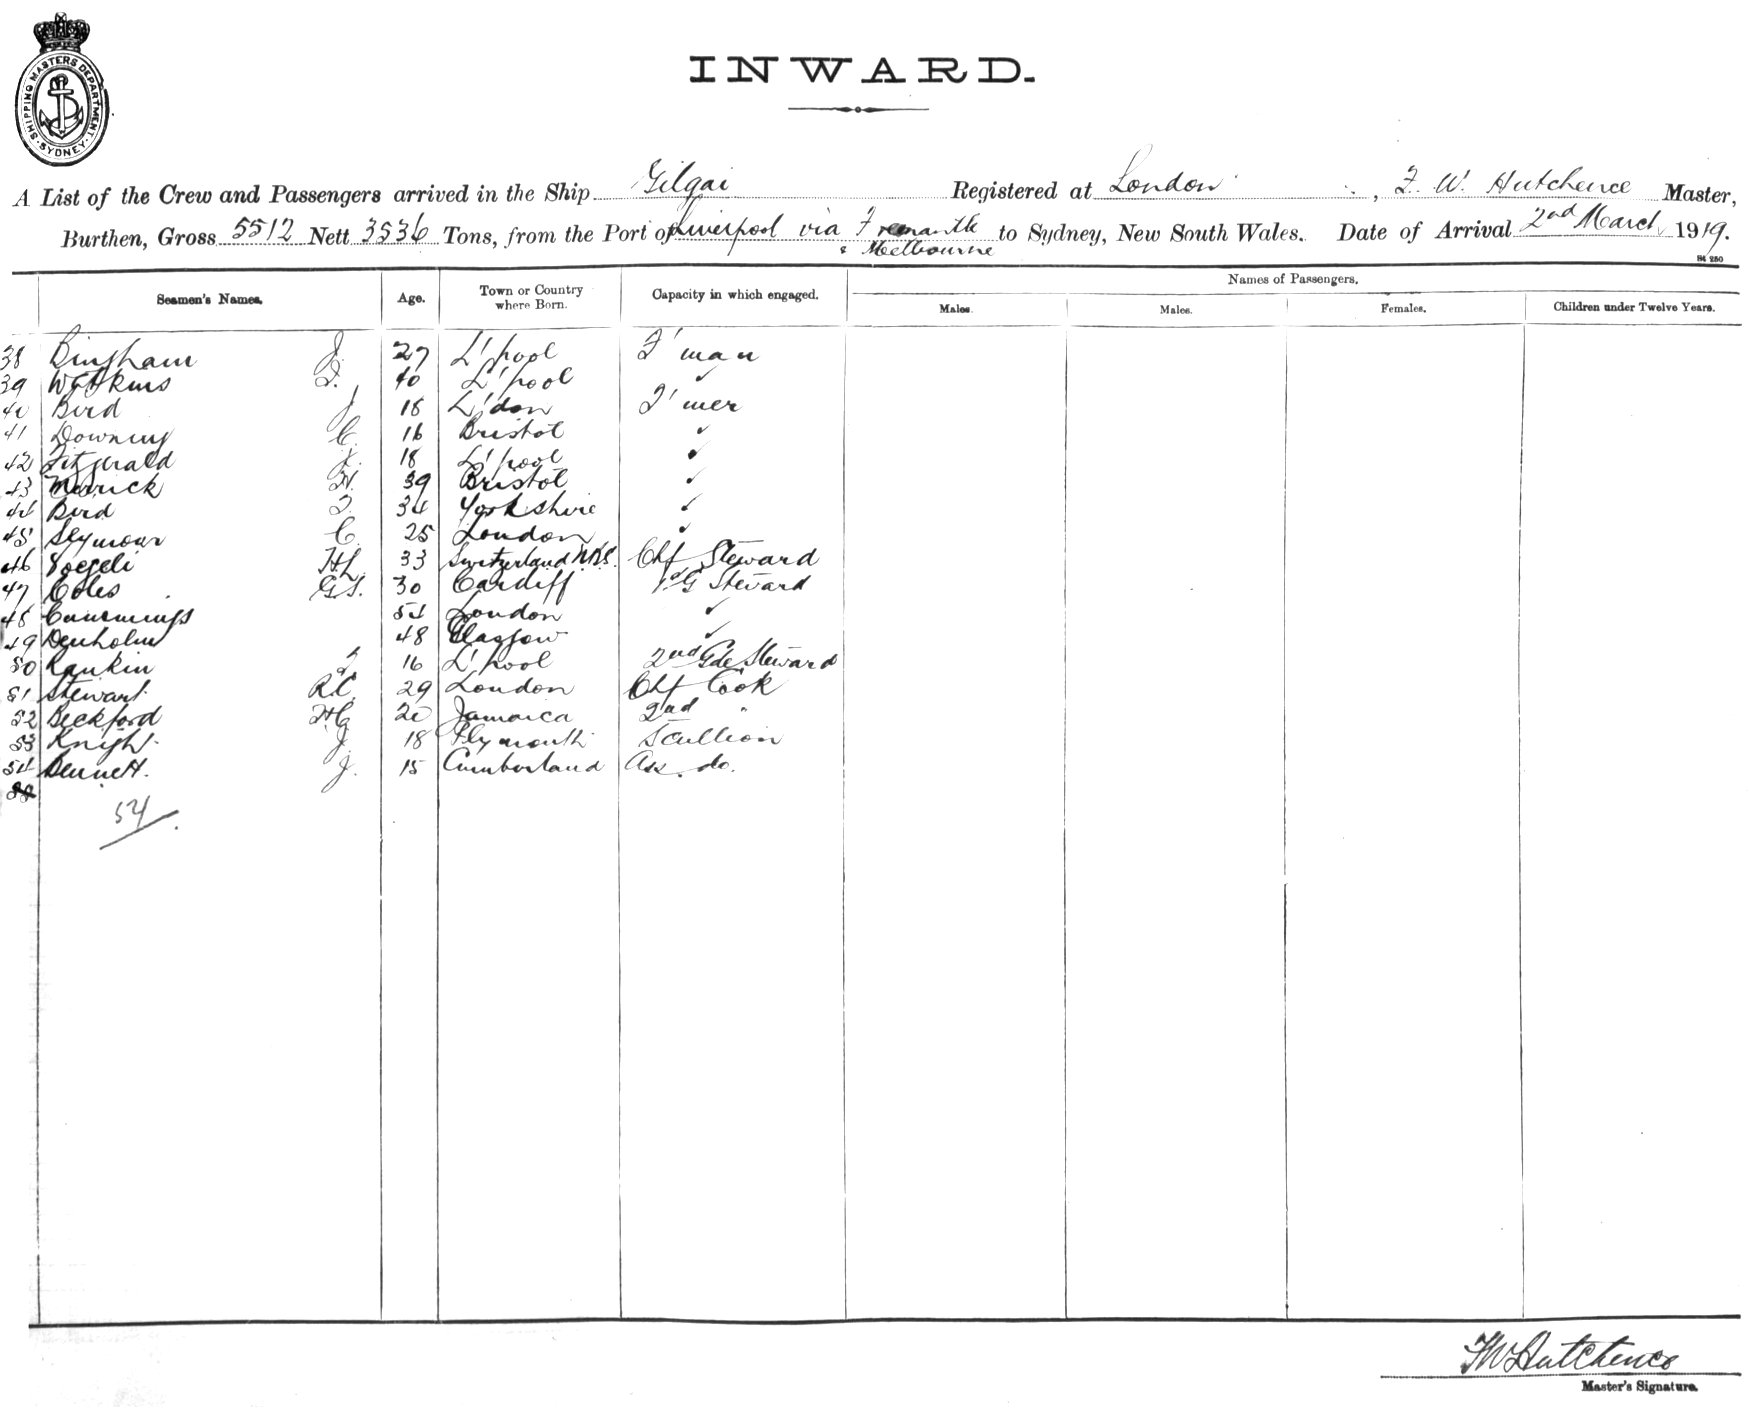 SHIPPING MASTERS DEPARTMENT · SYDNEY ·
INWARD.
A List of the Crew and Passengers arrived in the Ship Gilgai Registered at London, F. W. Hutchence Master,
Burthen, Gross 5512 Nett 3536 Tons, from the Port of Liverpool via Fremantle to Sydney, New South Wales. Date of Arrival 2nd March 1919.
& Melbourne
84 250
Names of Passengers.
Seamen's Names. Age. Town or Country where Born. Capacity in which engaged. Males. Males. Females. Children under Twelve Years.
38 Bingham J. 27 L'pool F'man
39 Watkins 40 L'pool ✓
40 Bird J 18 L'don T'mer
41 Downing C. 16 Bristol ✓
42 Fitzgerald 18 L'pool ✓
43 Merrick 39 Bristol ✓
44 Bird 34 Yorkshire ✓
45 Seymour C. 25 London ✓
46 Voegeli H.L. 33 Switzerland Chf Steward
47 Coles G.S. 30 Cardiff 1st G Steward
48 Cummings London ✓
49 Denholm 48 Glasgow ✓
50 Rankin 16 L'pool 2nd Gde Steward
51 Stewart R.C. 29 London Chf Cook
52 Beckford 20 Jamaica 2nd "
53 Knight J. 18 Plymouth Scullion
54 Bennett. J. 15 Cumberland Ass. do.
54
FW Hutchence
Master's Signature.